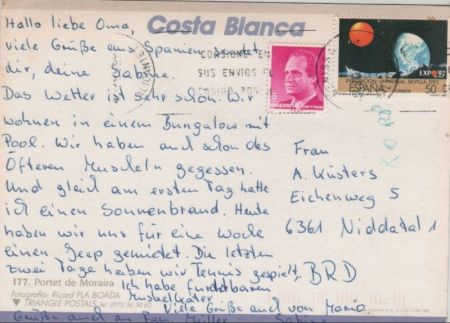 Costa Blanca
Hallo liebe Oma,
viele Grüße aus Spanien sendet
dir, deine Sabine.
Das Wetter ist sehr schön. Wir
wohnen in einem Bungalow mit
Pool. Wir haben auch schon des
Öfteren Muscheln gegessen.
Und gleich am ersten Tag hatte
ich einen Sonnenbrand. Heute
haben wir uns für eine Woche
einen Jeep gemietet. Die letzten
zwei Tage haben wir Tennis gespielt,
Ich habe furchtbaren
Muskelkater.
Viele Grüße auch von Mario
Grüße auch an Fam. Müller
Sabine
CONSIGNE EN
SUS ENVIOS EL
CODIGO POSTAL
España
EXPO 92
EXPOSICION UNIVERSAL SEVILLA 1992
ESPAÑA
50
Frau
A. Küsters
Eichenweg 5
6361 Niddatal 1
BRD
177. Portet de Moraira
Fotografia: Ricard PLA BOADA
TRIANGLE POSTALS Tel. (971)